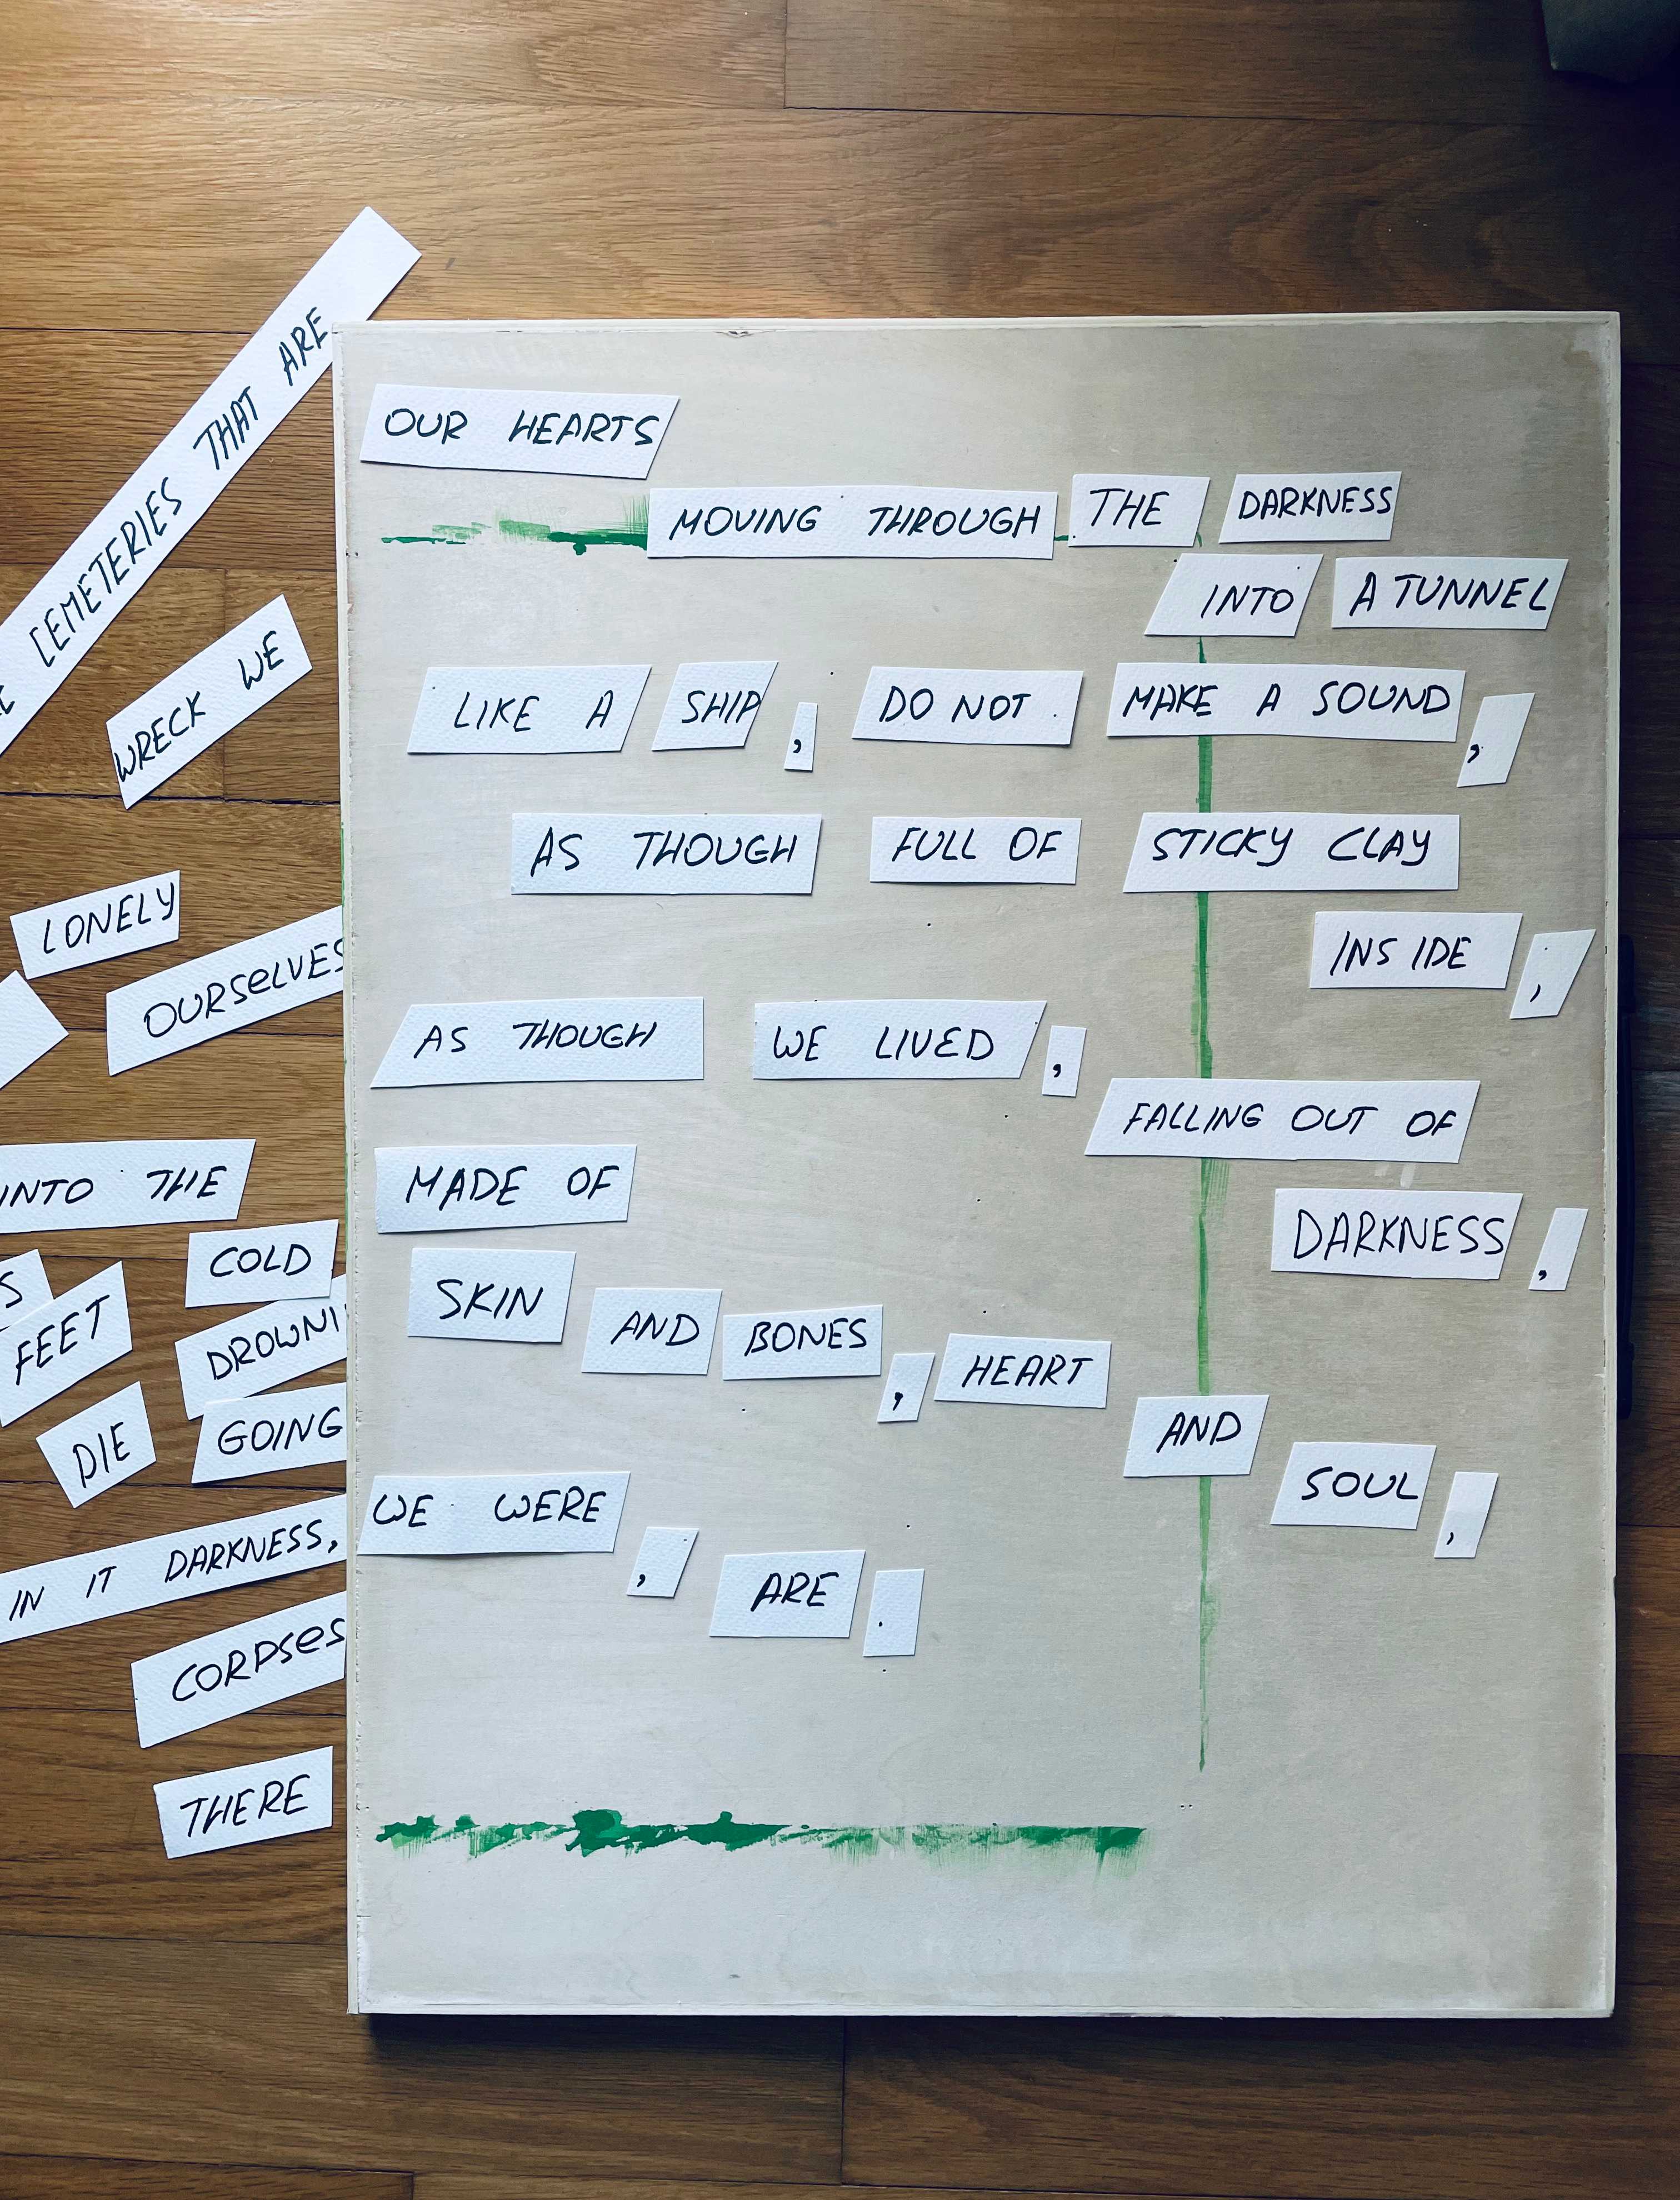 OUR HEARTS
MOVING THROUGH THE DARKNESS
INTO A TUNNEL
LIKE A SHIP, DO NOT MAKE A SOUND,
AS THOUGH FULL OF STICKY CLAY
INSIDE,
AS THOUGH WE LIVED,
FALLING OUT OF
MADE OF
DARKNESS,
SKIN AND BONES, HEART
AND
SOUL,
WE WERE, ARE.
CEMETERIES THAT ARE
WRECK WE
LONELY
OURSELVES
INTO THE
COLD
FEET
DROWNI
DIE
GOING
IN IT DARKNESS,
CORPSES
THERE